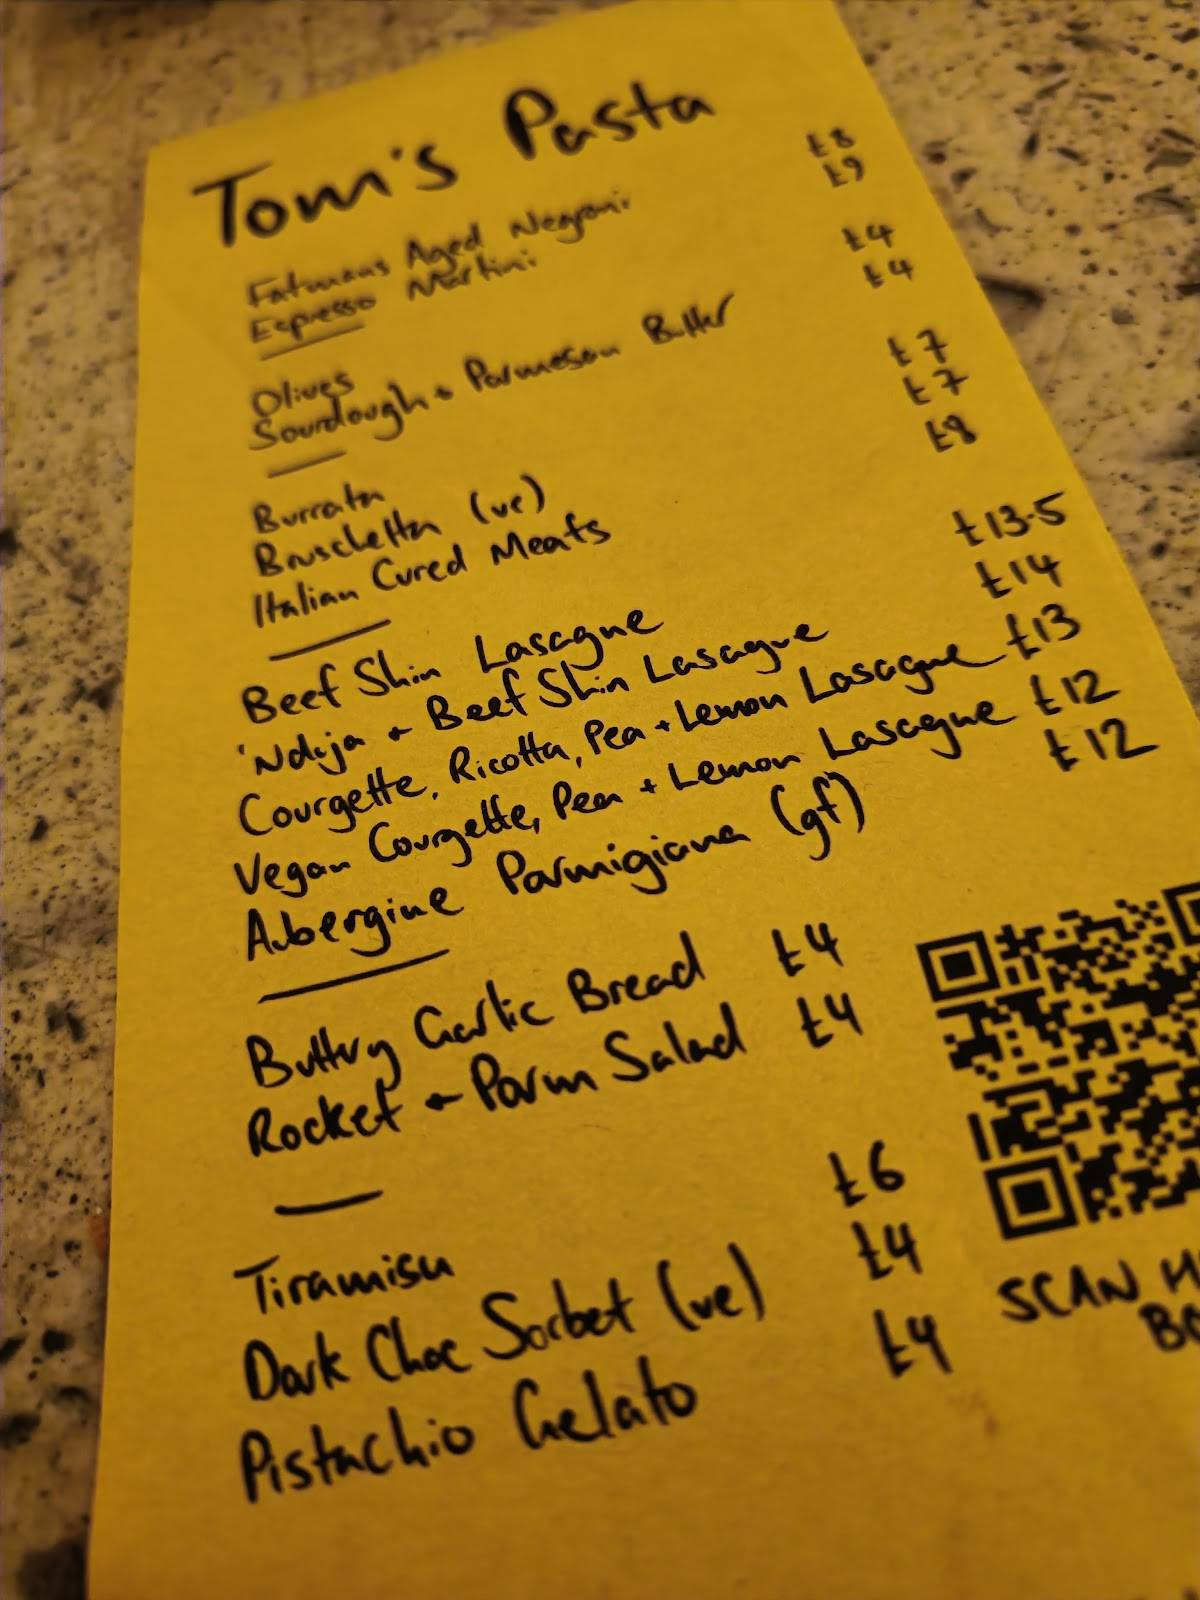 Tom's Pasta
Fatmans Aged Negroni £8
Espresso Martini £9
Olives £4
Sourdough + Parmesan Butter £4
Burrata £7
Bruschetta (ve) £7
Italian Cured Meats £8
Beef Shin Lasagne £13.5
'Nduja + Beef Shin Lasagne £14
Courgette, Ricotta, Pea + Lemon Lasagne £13
Vegan Courgette, Pea + Lemon Lasagne £12
Aubergine Parmigiana (gf) £12
Buttery Garlic Bread £4
Rocket + Parm Salad £4
Tiramisu £6
Dark Choc Sorbet (ve) £4
Pistachio Gelato £4
SCAN